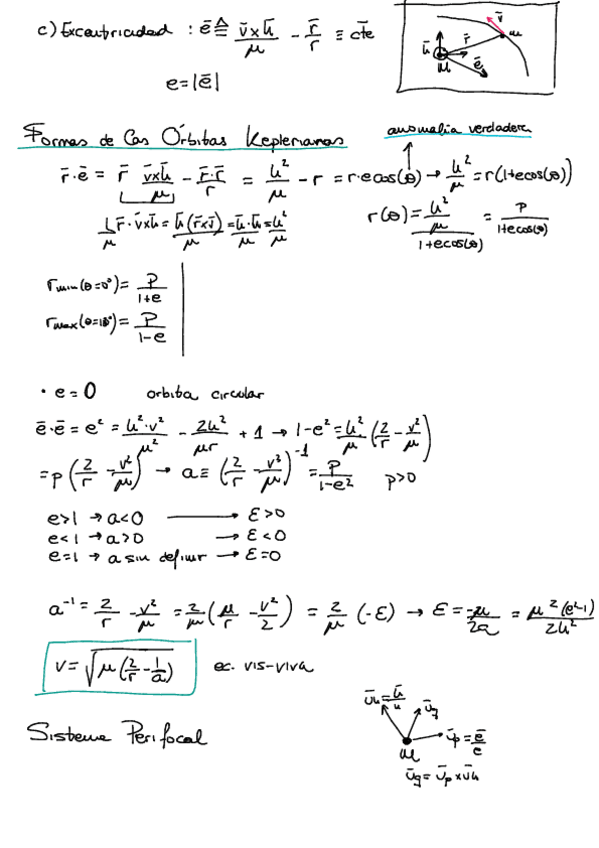 c) Excentricidad : ē ≜ v̄xh̄/μ - r̄/r ≡ cte
e=|ē|
v̄
r̄
m
h̄
M
ē
Formas de las Órbitas Keplerianas
anomalía verdadera
r̄·ē = r̄ v̄xh̄/μ - r̄·r̄/r = h²/μ - r = r·e cos(θ) → h²/μ = r(1+ecos(θ))
1/μ r̄·v̄xh̄ = h̄(r̄xv̄)/μ = h̄·h̄/μ = h²/μ
r(θ) = (h²/μ)/(1+ecos(θ)) = p/(1+ecos(θ))
rmin(θ=0°) = p/(1+e)
rmax(θ=18°) = p/(1-e)
• e = 0 orbita circular
ē·ē = e² = h²·v²/μ² - 2h²/μr + 1 → 1-e² = h²/μ (2/r - v²/μ)
= p(2/r - v²/μ) → a ≡ (2/r - v²/μ)⁻¹ = p/(1-e²) p>0
e>1 → a<0 → ε>0
e<1 → a>0 → ε<0
e=1 → a sin definir → ε=0
a⁻¹ = 2/r - v²/μ = 2/μ (μ/r - v²/2) = 2/μ (-ε) → ε = -μ/2a = μ²(e²-1)/2h²
v = √(μ(2/r - 1/a)) ec. vis-viva
Sistema Perifocal
ūh = h̄/h
ūq
ūp = ē/e
M
ūq = ūp x ūh